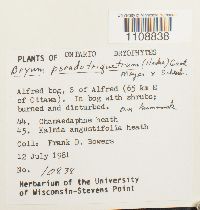 1108838
PLANTS OF ONTARIO BRYOPHYTES
Bryum pseudotriquetrum (Hedw.) Gaertn.
Meyer & Scherb.
Alfred bog, S of Alfred (65 km E
of Ottawa). In bog with shrubs;
burned and disturbed.
44. Chamaedaphne heath
45. Kalmia angustifolia heath
Coll: Frank D. Bowers
12 July 1981
No. 10838
Herbarium of the University
of Wisconsin-Stevens Point